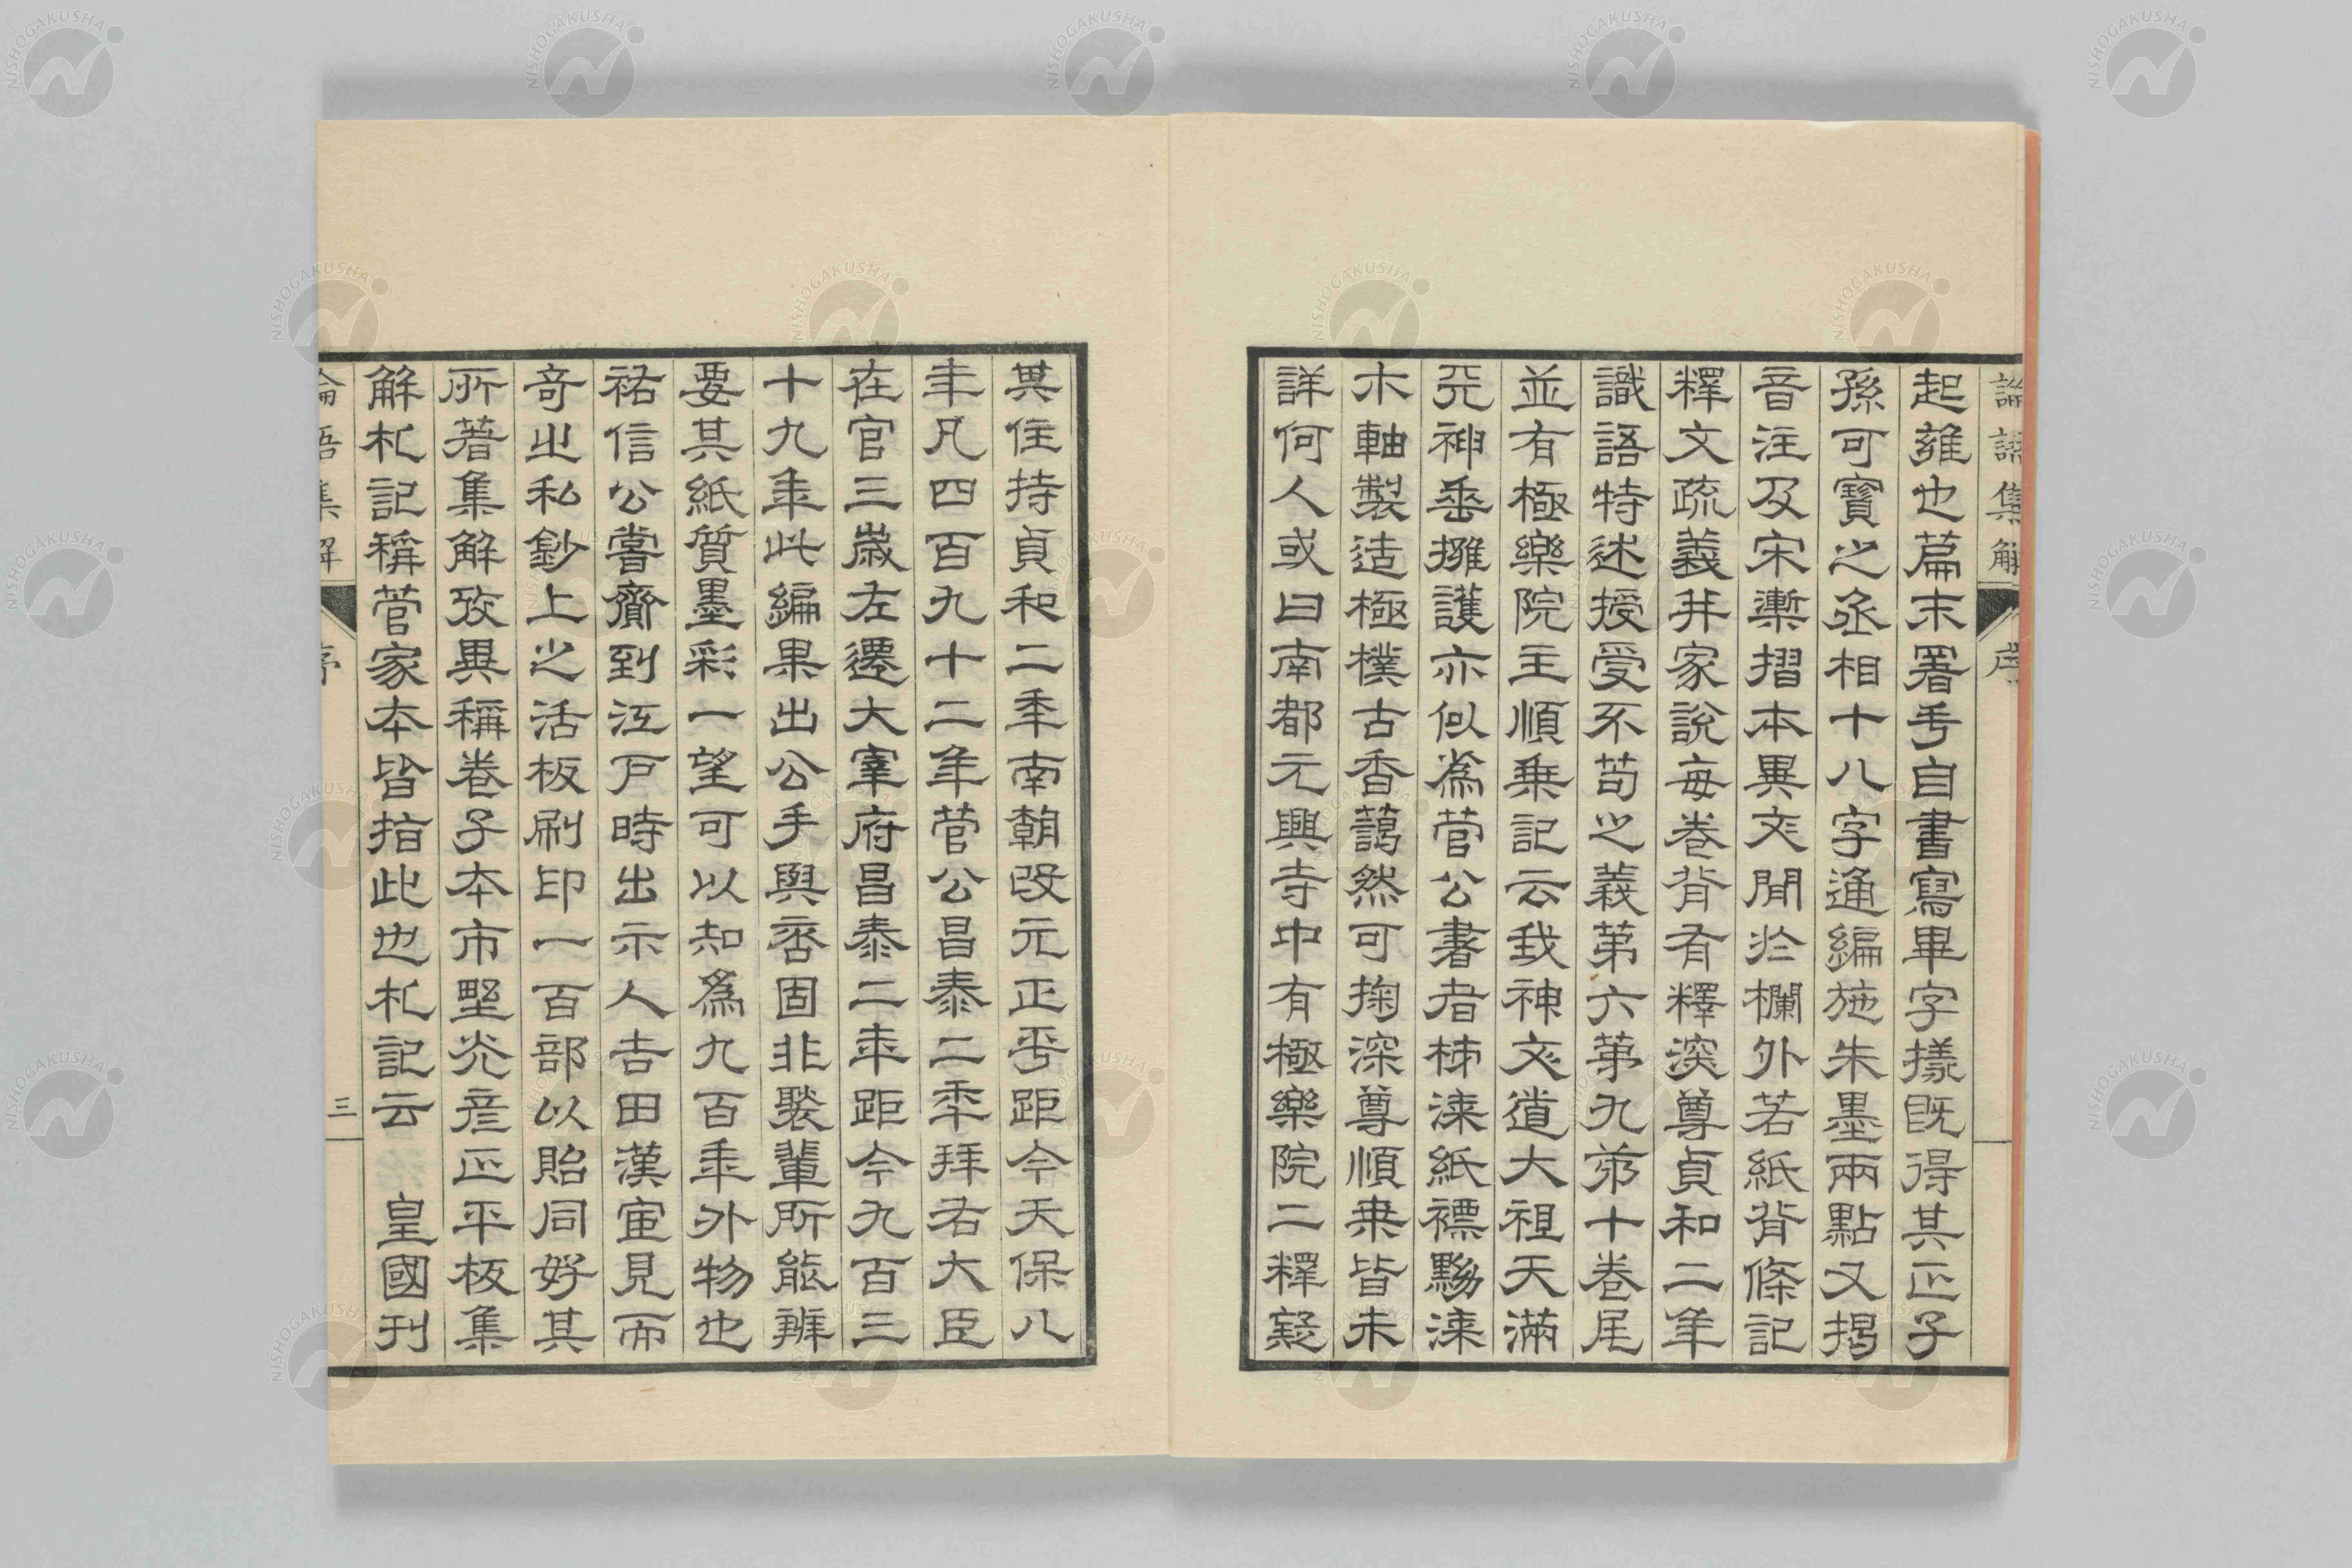 論語集解 序
起雍也篇末署手自書寫畢字㨾既得其正子
孫可寶之丞相十八字通編施朱墨兩點又揭
音注及宋槧摺本異文閒於欄外若紙背條記
釋文疏義幷家說每卷背有釋深尊貞和二年
識語特述授受不苟之義第六第九第十卷尾
並有極樂院主順乗記云我神文道大祖天滿
天神垂擁護亦似爲菅公書者柹漆紙褾黝漆
木軸製造極樸古香藹然可掬深尊順乗皆未
詳何人或曰南都元興寺中有極樂院二釋疑
其住持貞和二年南朝改元正平距今天保八
年凡四百九十二年菅公昌泰二年拜右大臣
在官三歲左遷大宰府昌泰二年距今九百三
十九年此編果出公手與否固非褧輩所能辨
要其紙質墨彩一望可以知爲九百年外物也
祐信公嘗齎到江戶時出示人吉田漢宦見而
奇之私鈔上之活板刷印一百部以貽同好其
所著集解攷異稱卷子本市野光彥正平板集
解札記稱菅家本皆指此也札記云 皇國刊
論語集解 序 三
NISHOGAKUSHA